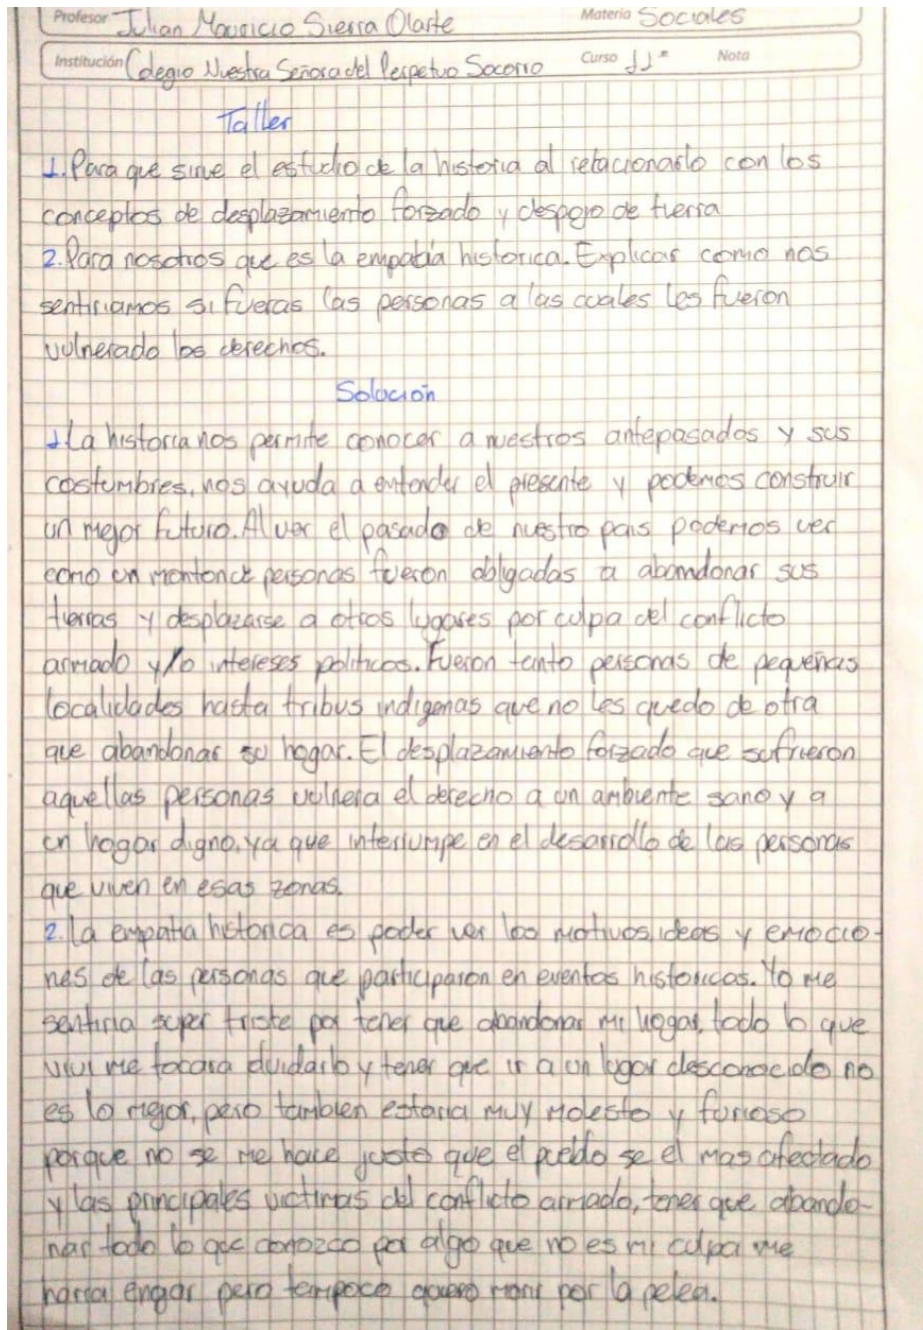 Profesor Julian Mauricio Sierra Olarte Materia Sociales
Institución Colegio Nuestra Señora del Perpetuo Socorro Curso 11° Nota
Taller
1. Para que sirve el estudio de la historia al relacionarlo con los
conceptos de desplazamiento forzado y despojo de tierra
2. Para nosotros que es la empatía historica. Explicar como nos
sentiriamos si fueras las personas a las cuales les fueron
vulnerado los derechos.
Solución
1. La historia nos permite conocer a nuestros antepasados y sus
costumbres, nos ayuda a entender el presente y podemos construir
un mejor futuro. Al ver el pasado de nuestro pais podemos ver
como un monton de personas fueron obligadas a abandonar sus
tierras y desplazarse a otros lugares por culpa del conflicto
armado y/o intereses politicos. Fueron tanto personas de pequeñas
localidades hasta tribus indigenas que no les quedo de otra
que abandonar su hogar. El desplazamiento forzado que sufrieron
aquellas personas vulnera el derecho a un ambiente sano y a
un hogar digno, ya que interrumpe en el desarrollo de las personas
que viven en esas zonas.
2. La empatia historica es poder ver los motivos, ideas y emocio-
nes de las personas que participaron en eventos historicos. Yo me
sentiria super triste por tener que abandonar mi hogar, todo lo que
vivi me tocara olvidarlo y tener que ir a un lugar desconocido no
es lo mejor, pero tambien estaria muy molesto y furioso
porque no se me hace justo que el pueblo se el mas afectado
y las principales victimas del conflicto armado, tener que abando-
nar todo lo que conozco por algo que no es mi culpa me
haria enojar pero tampoco quiero morir por la pelea.